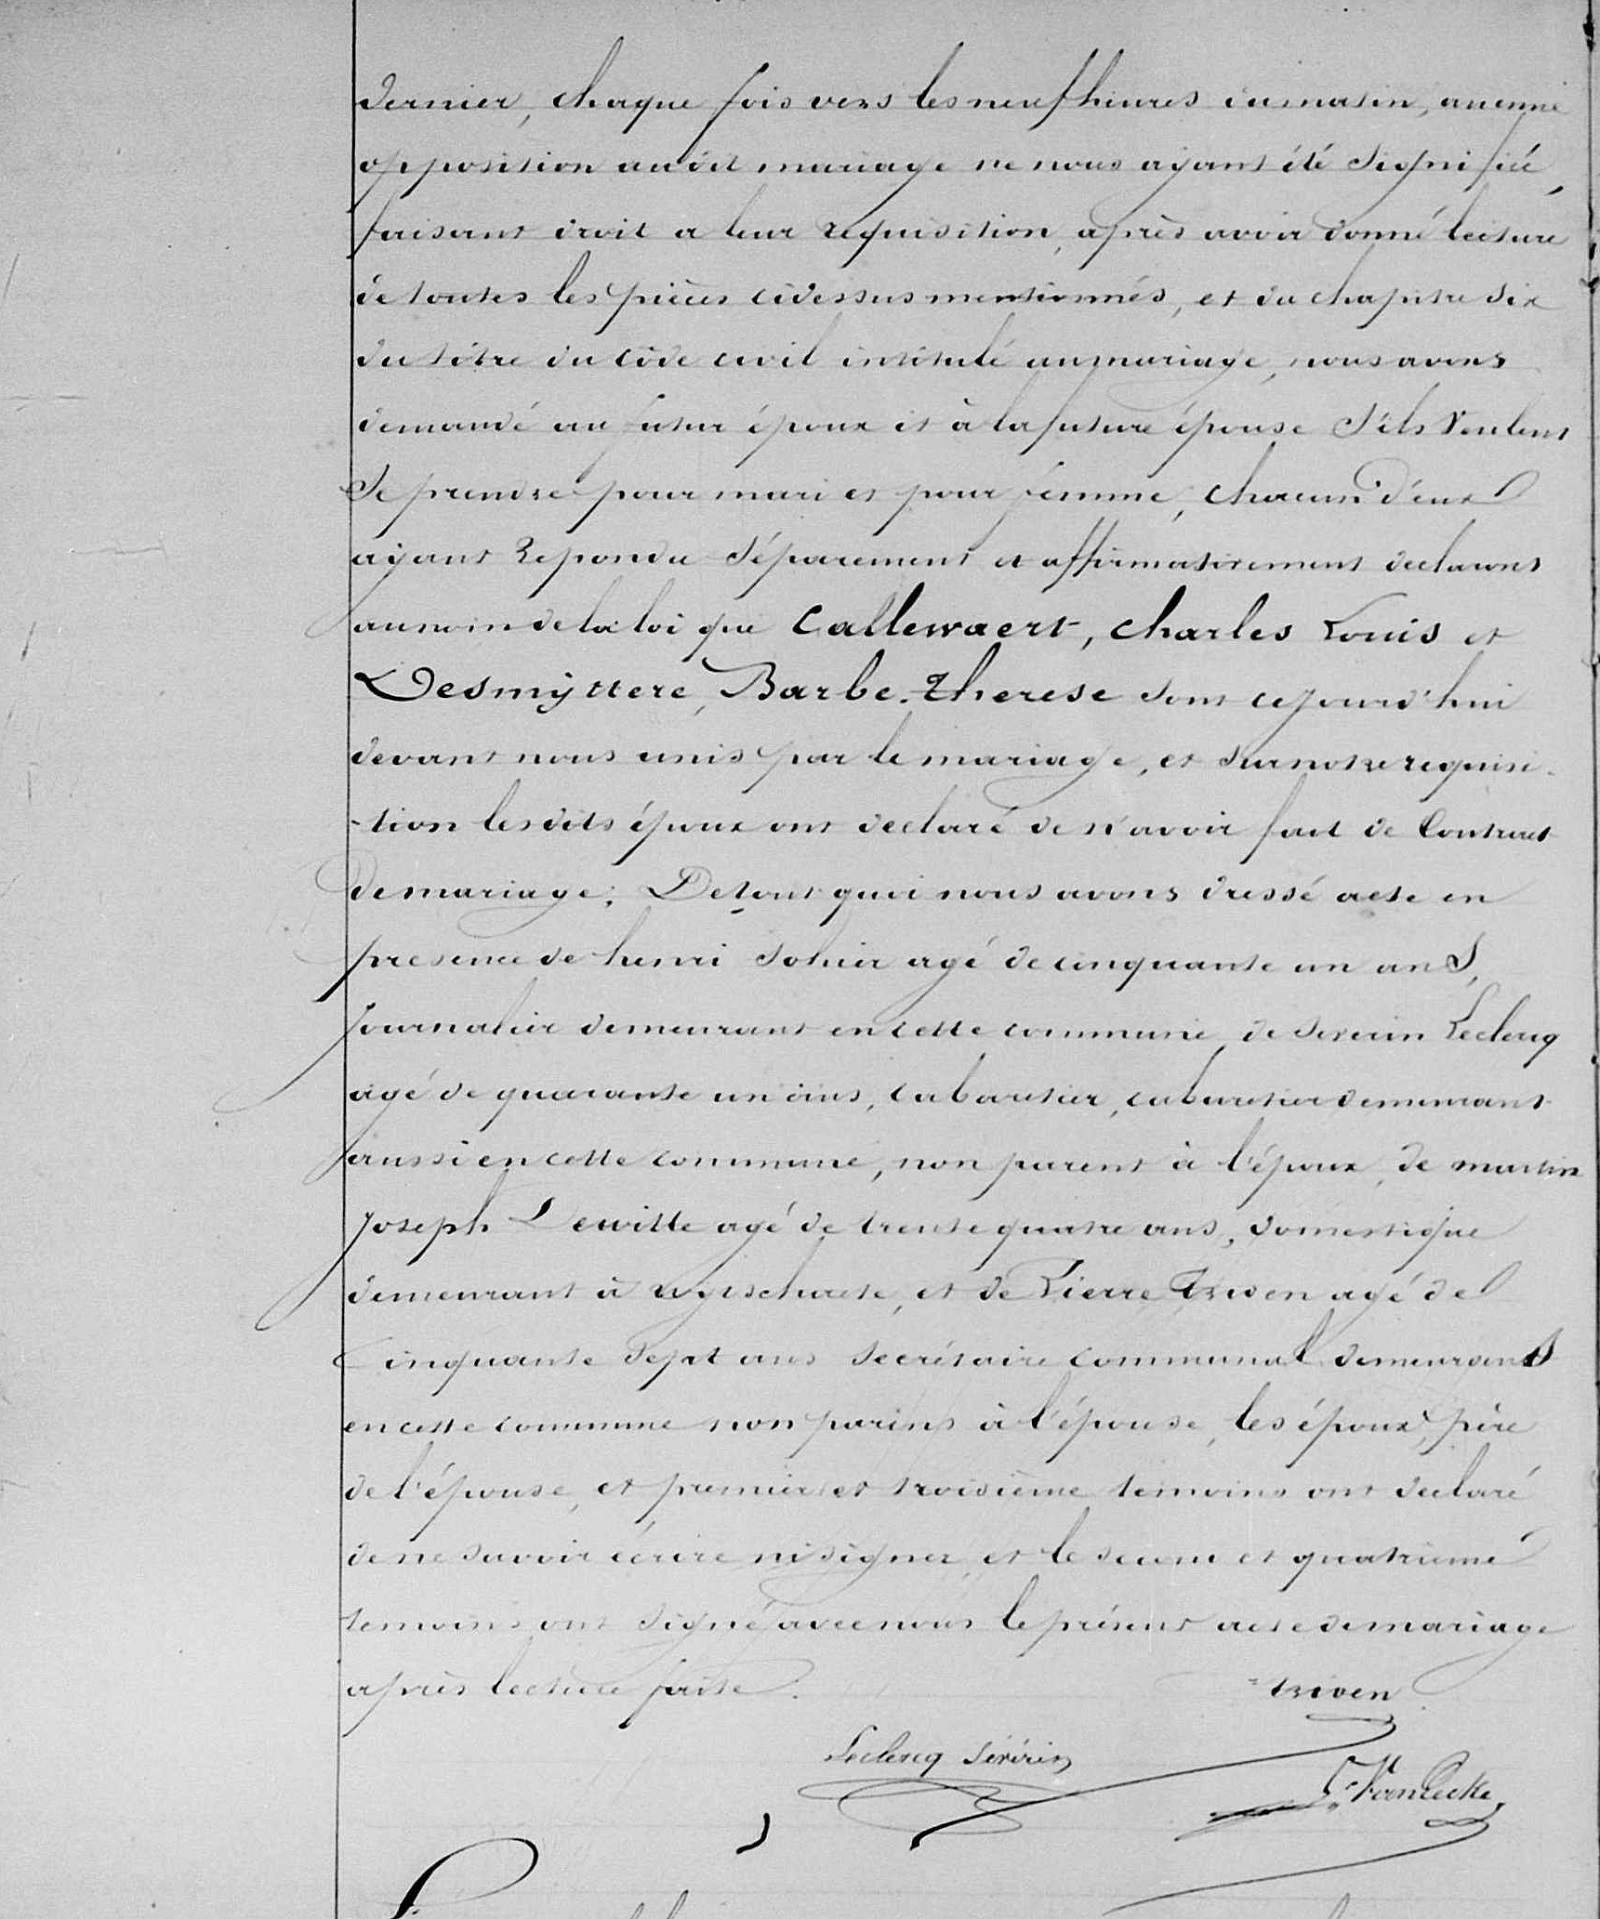 dernier, chaque fois vers les neuf heures du matin, aucune
opposition audit mariage ne nous ayant été signifiée,
faisant droit a leur requisition, après avoir donné lecture
de toutes les pièces cidessus mentionnés, et du chapitre six
du titre du code civil intitulé du mariage, nous avons
demandé au futur époux et à la future épouse s'ils veulent
se prendre pour mari et pour femme, chacun d'eux
ayant repondu séparement et affirmativement declarons
au nom de la loi que Callewaert, Charles Louis et
Desmÿttere, Barbe-Therese sont cejourd'hui
devant nous unis par le mariage, et sur notre requisi-
-tion lesdits époux ont declaré de n'avoir fait de Contract
de mariage; De tout quoi nous avons dressé acte en
presence de henri Sohier agé de cinquante un ans,
journalier demeurant en cette commune, de Severin Leclercq
agé de quarante un ans, cabaretier, cabaretier demeurant
aussi en cette commune, non parent à l'époux, de martin
Joseph Dewitte agé de trente quatre ans, domestique
demeurant à wytschaete, et de Pierre Triven agé de
Cinquante sept ans secrétaire communal demeurant
en cette commune non parens à l'épouse, les époux, père
de l'épouse, et premier et troisième temoins ont declaré
de ne savoir écrire ni signer, et le second et quatrieme
temoins ont signé avec nous le présent acte de mariage
après lecture faite.
triven
Leclercq Sévérin
VanEecke